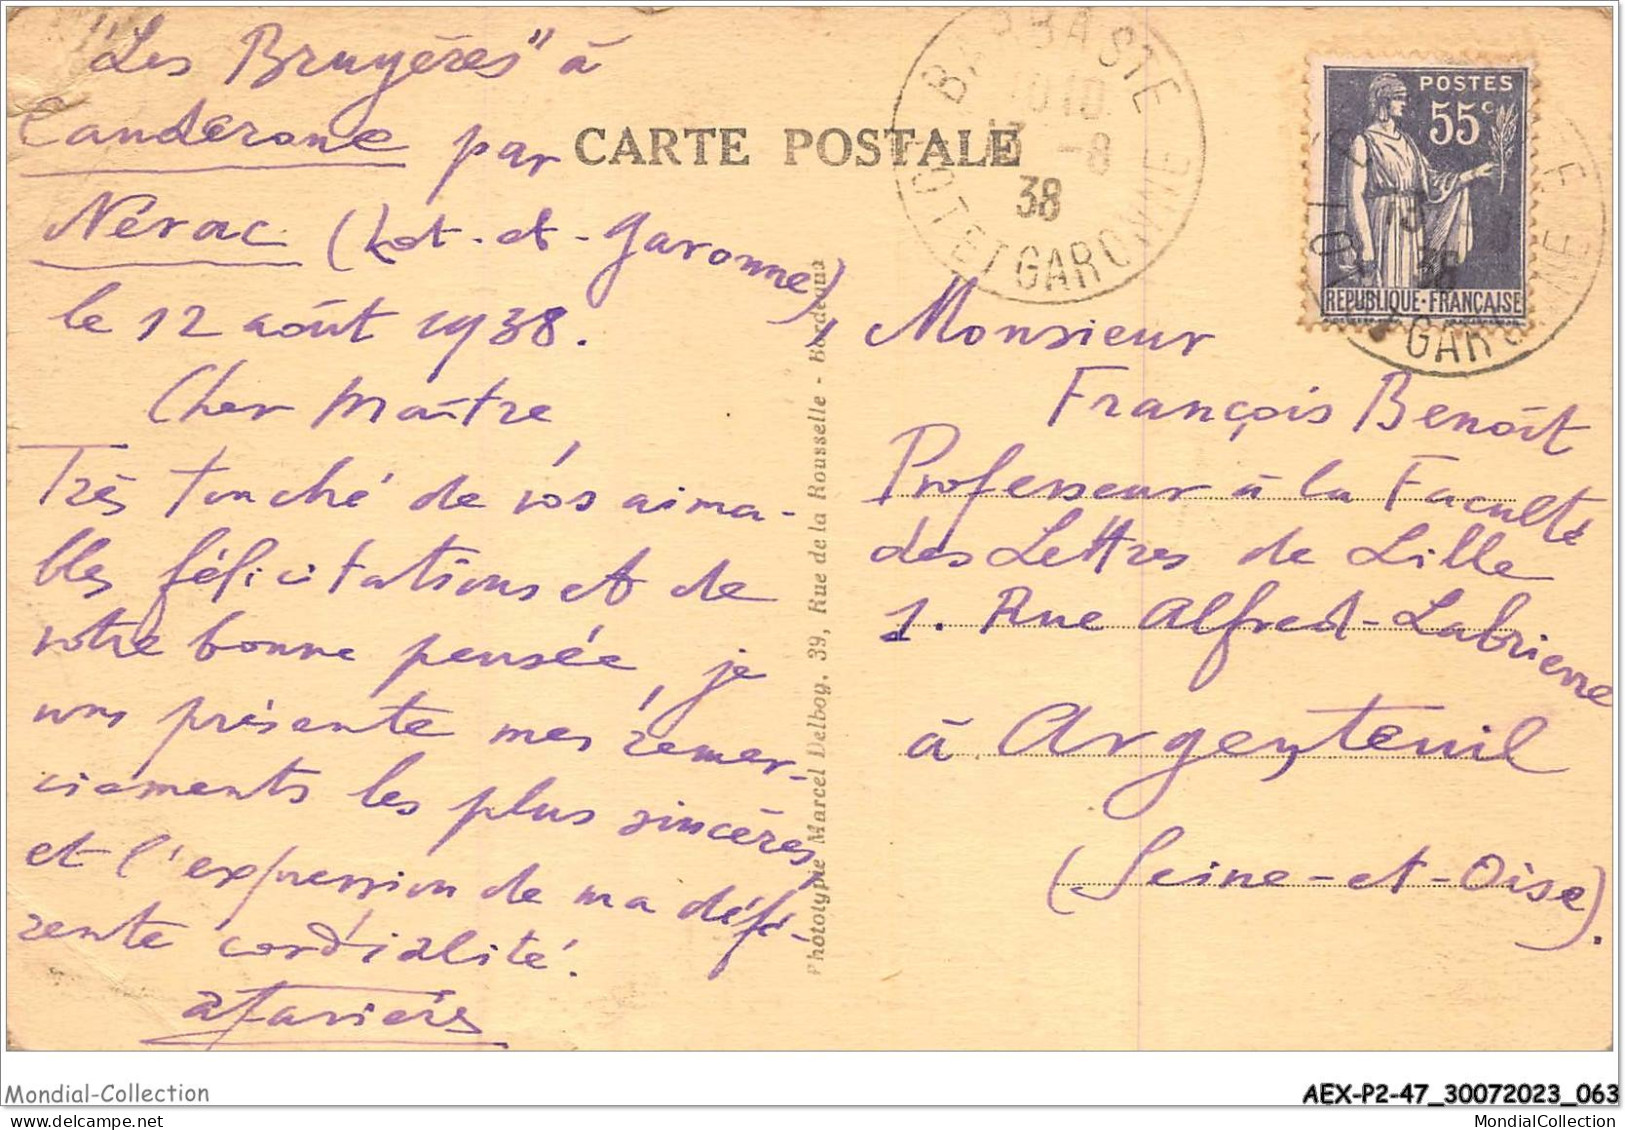 "Les Bruyères" à
Canderone par
Nérac (Lot-et-Garonne),
le 12 août 1938.
Cher Maître,
Très touché de vos aima-
bles félicitations et de
votre bonne pensée, je
vous présente mes remer-
ciements les plus sincères,
et l'expression de ma défé-
rente cordialité.
CARTE POSTALE
BARBASTE
10 10
13 -8
38
LOT ET GARONNE
POSTES
55c
REPUBLIQUE·FRANÇAISE
Photolypie Marcel Delboy, 39, Rue de la Rousselle - Bordeaux
Monsieur
François Benoît
Professeur à la Faculté
des Lettres de Lille
1. Rue Alfred-Labrierre
à Argenteuil
(Seine-et-Oise).
Mondial-Collection
AEX-P2-47_30072023_063
MondialCollection